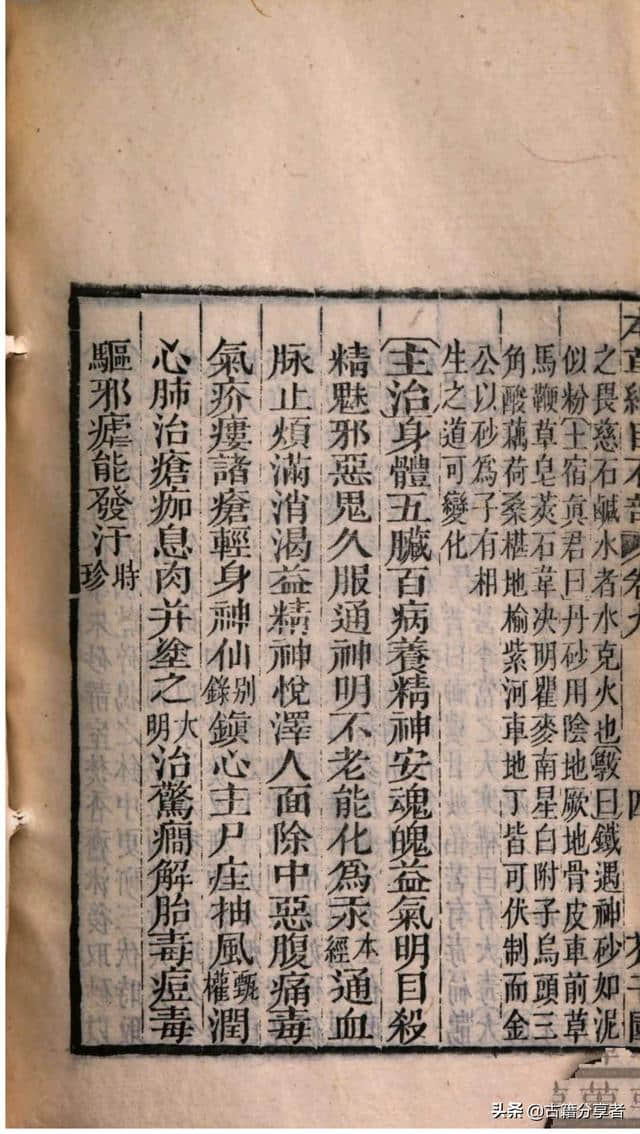 之畏慈石鹹水者水克火也〔斆曰鐵遇神砂如泥
似粉〔土宿真君曰丹砂用陰地厥地骨皮車前草
馬鞭草皂莢石韋决明瞿麥南星白附子烏頭三
角酸藕荷桑椹地榆紫河車地丁皆可伏制而金
公以砂爲子有相
生之道可變化
〔主治〕身體五臟百病養精神安魂魄益氣明目殺
精魅邪惡鬼久服通神明不老能化爲汞本經通血
脉止煩滿消渴益精神悅澤人面除中惡腹痛毒
氣疥瘻諸瘡輕身神仙别錄鎮心主尸疰抽風甄權潤
心肺治瘡痂息肉并塗之大明治驚癇解胎毒痘毒
驅邪瘧能發汗時珍
头条 @古籍分享者